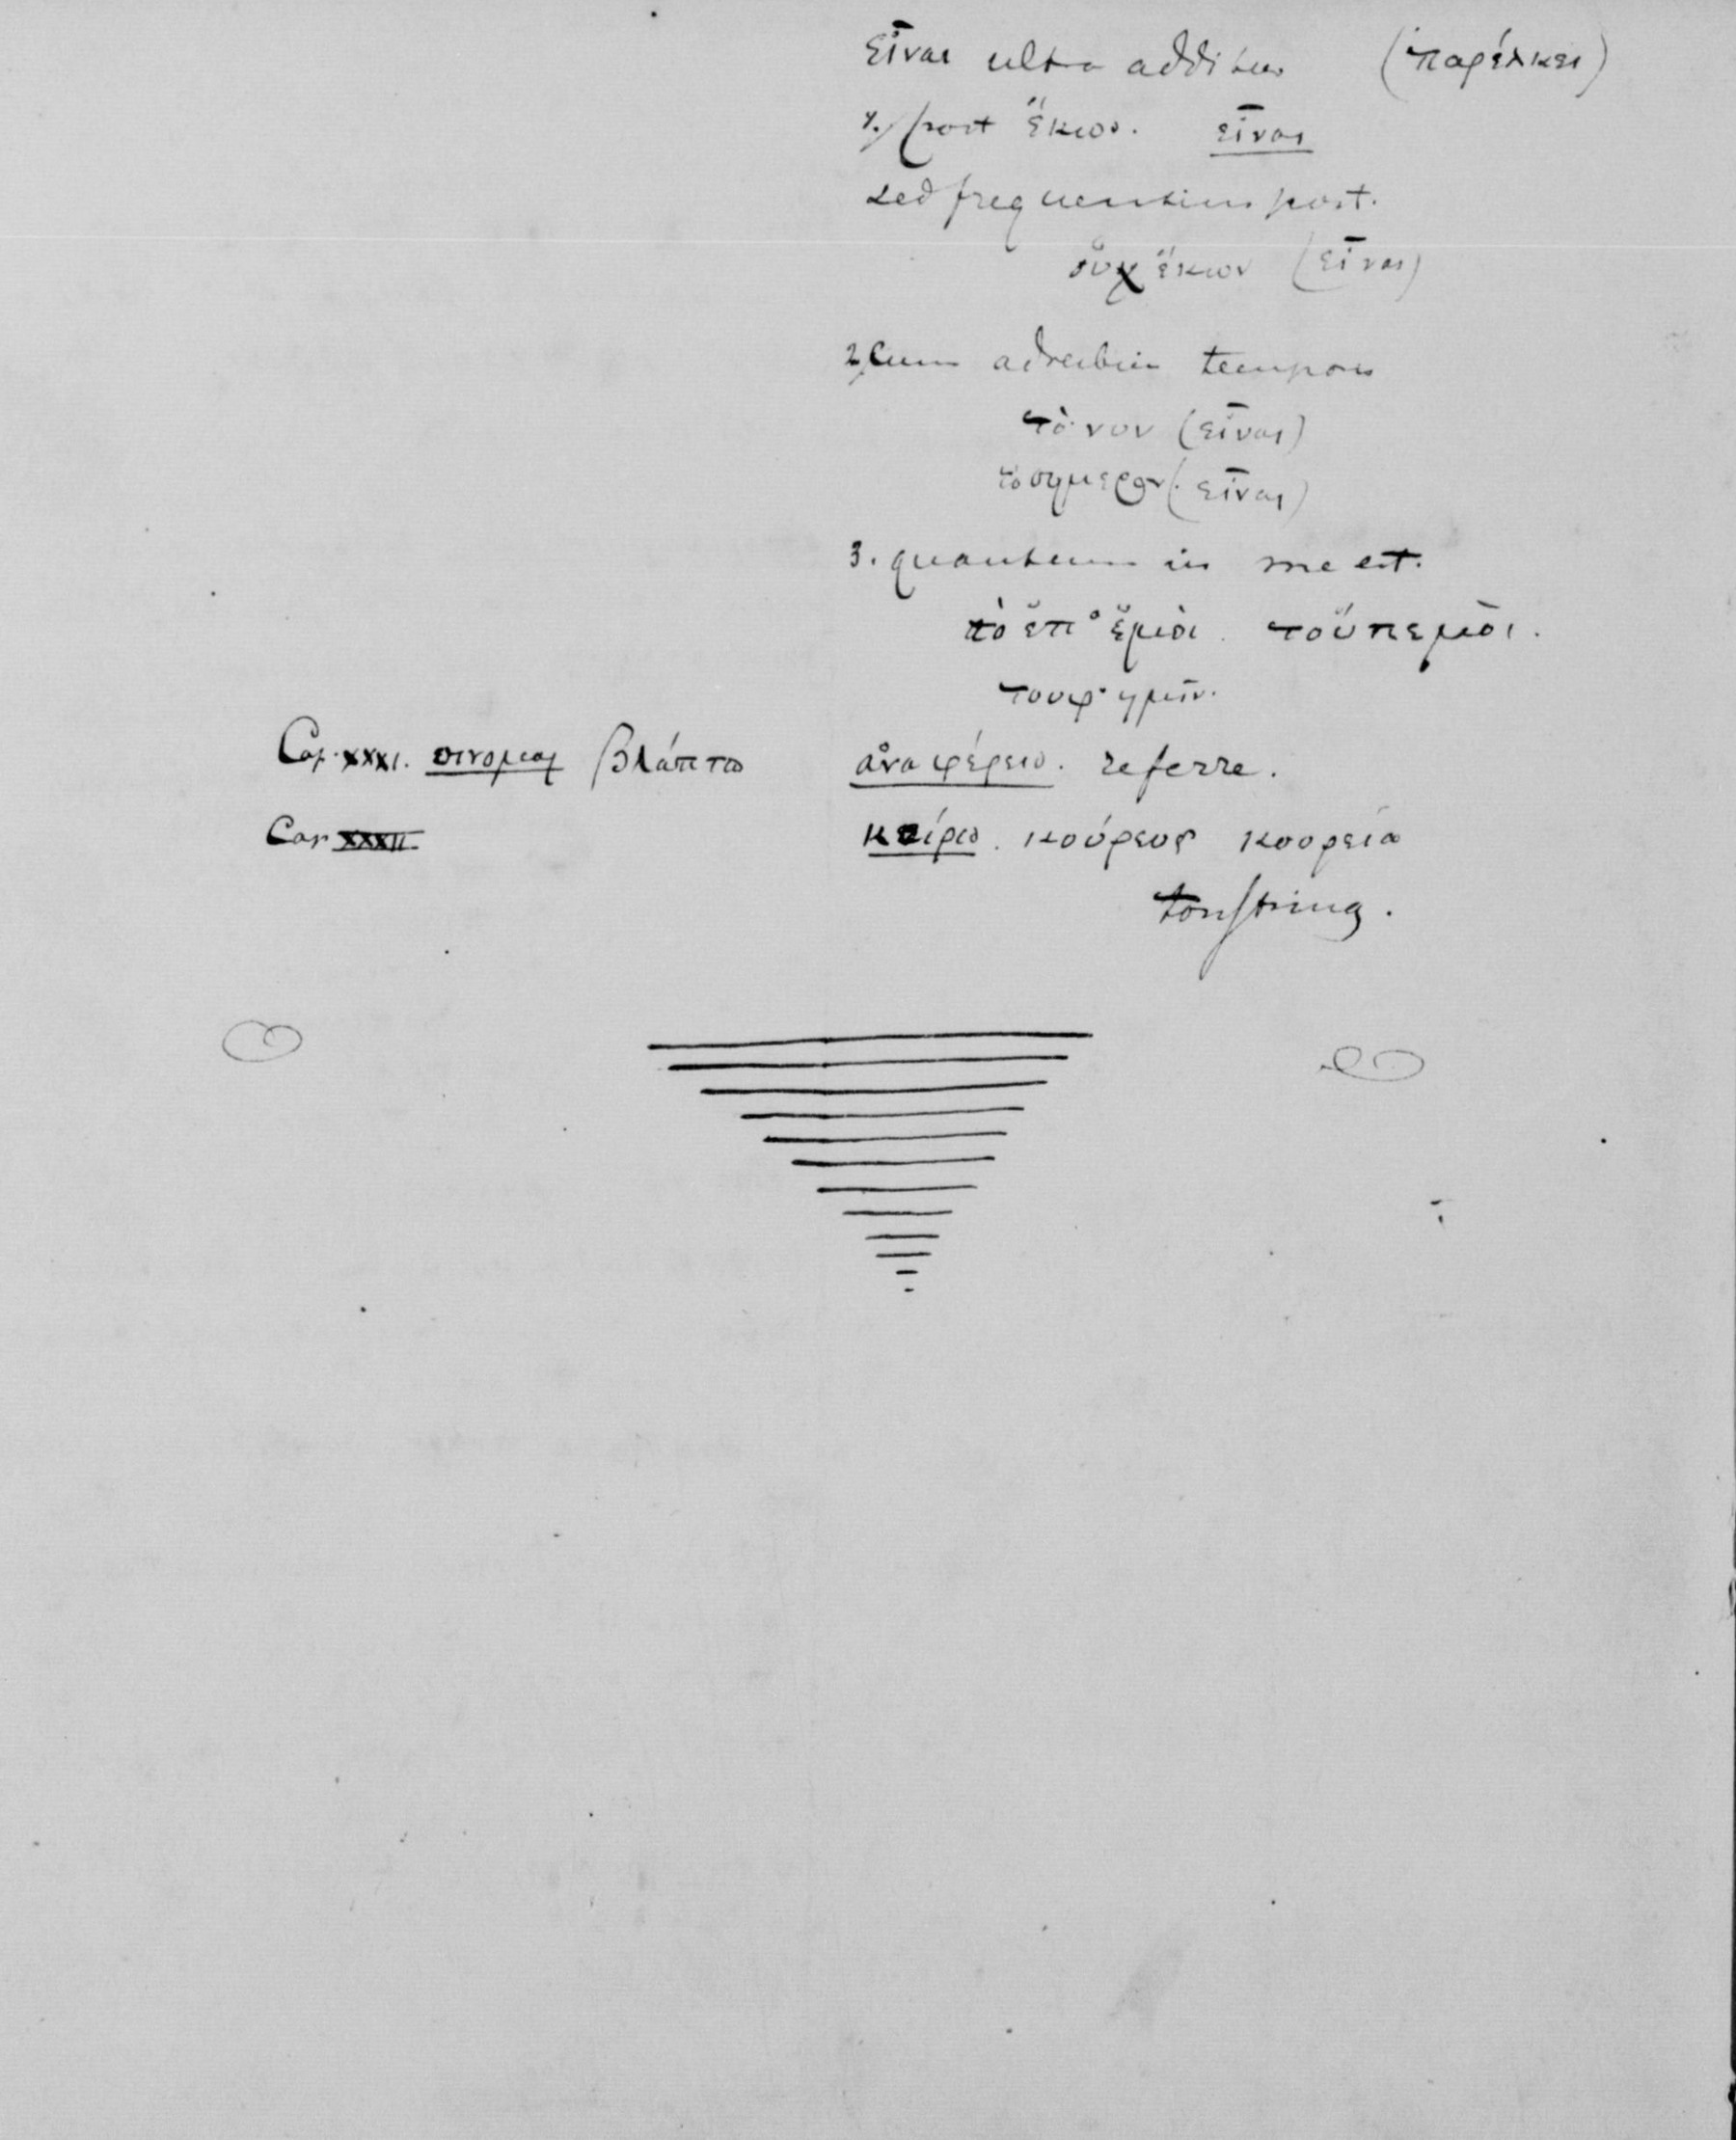 εἶναι ultro additur (παρέλκει)
1./ post ἕκων. εἶναι
sed frequentius post.
οὐχ ἕκων (εἶναι)
2/ Cum adverbiis temporis
τὸ νυν (εἶναι)
το σημερον (εἶναι)
3. quantum in me est.
τὸ ἐπ' ἐμοὶ. τοὐπεμοὶ.
τουφ' ημῖν.
Cap. XXXI. σινομαι βλάπτω ἀναφέρειν. referre.
Cap XXXII κείρω. κούρευς κουρεία
tonstrina.